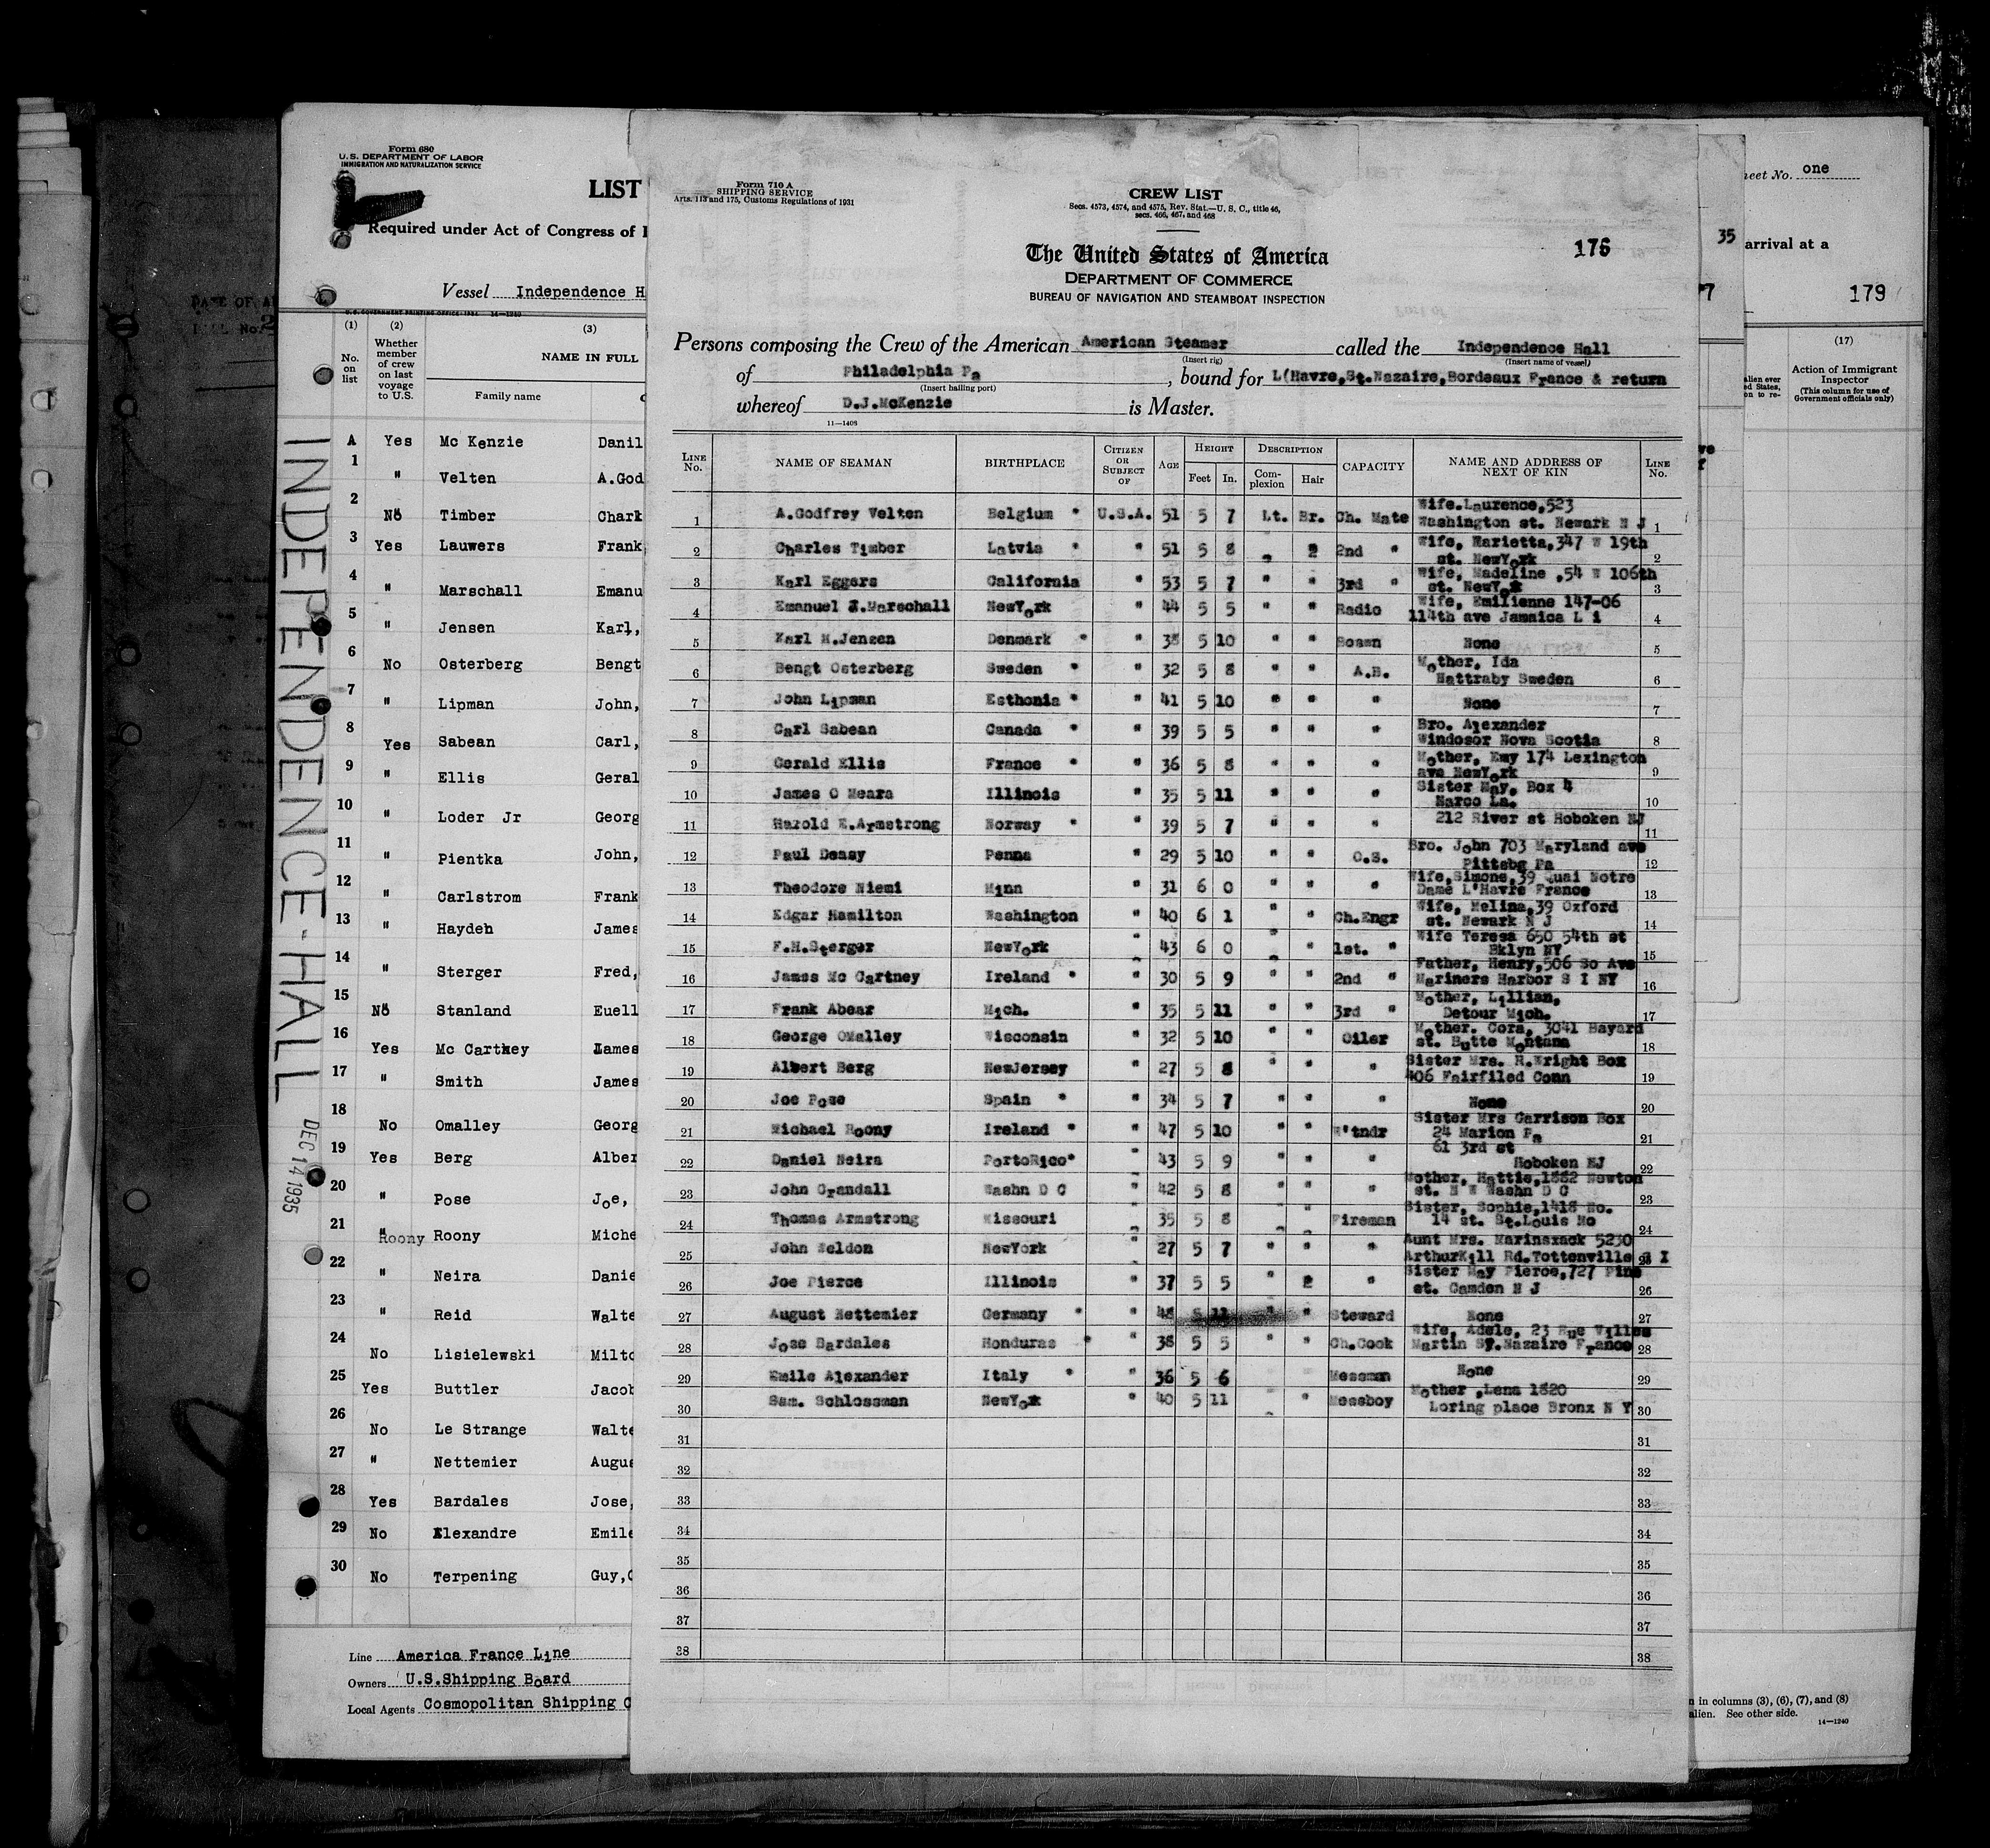 Form 680
U.S. DEPARTMENT OF LABOR
IMMIGRATION AND NATURALIZATION SERVICE
LIST
Required under Act of Congress of
Vessel Independence H
U.S. GOVERNMENT PRINTING OFFICE: 1934 14—1240
(1) (2) (3)
No. on list
Whether member of crew on last voyage to U.S.
NAME IN FULL
Family name
A Yes Mc Kenzie Danil
1 " Velten A.God
2 No Timber Charl
3 Yes Lauwers Frank
4 " Marschall Emanu
5 " Jensen Karl,
6 No Osterberg Bengt
7 " Lipman John,
8 Yes Sabean Carl,
9 " Ellis Geral
10 " Loder Jr Georg
11 " Pientka John,
12 " Carlstrom Frank
13 " Haydeh James
14 " Sterger Fred,
15 No Stanland Euell
16 Yes Mc Cartney James
17 " Smith James
18 No Omalley Georg
19 Yes Berg Alber
20 " Pose Joe,
21 " Roony Roony Miche
22 " Neira Danie
23 " Reid Walte
24 No Lisielewski Milto
25 Yes Buttler Jacob
26 No Le Strange Walte
27 " Nettemier Augus
28 Yes Bardales Jose,
29 No Alexandre Emile
30 No Terpening Guy,C
Line America France Line
Owners U.S.Shipping Board
Local Agents Cosmopolitan Shipping C
INDEPENDENCE-HALL
DEC 14 1935
Form 710 A
SHIPPING SERVICE
Arts. 113 and 175, Customs Regulations of 1931
CREW LIST
Secs. 4573, 4574, and 4575, Rev. Stat.—U. S. C., title 46,
secs. 466, 467, and 468
The United States of America
DEPARTMENT OF COMMERCE
BUREAU OF NAVIGATION AND STEAMBOAT INSPECTION
176
Persons composing the Crew of the American American Steamer called the Independence Hall
(Insert rig) (Insert name of vessel)
of Philadelphia Pa, bound for L(Havre,St.Nazaire,Bordeaux France & return
(Insert hailing port)
whereof D.J.McKenzie is Master.
11—1408
LINE No. NAME OF SEAMAN BIRTHPLACE CITIZEN OR SUBJECT OF AGE HEIGHT Feet In. DESCRIPTION Complexion Hair CAPACITY NAME AND ADDRESS OF NEXT OF KIN LINE No.
1 A.Godfrey Velten Belgium * U.S.A. 51 5 7 Lt. Br. Ch. Mate Wife.Laurence,523
Washington st. Newark N J 1
2 Charles Timber Latvia * " 51 5 8 " " 2nd " Wife, Marietta,347 W 19th
st. NewYork 2
3 Karl Eggers California " 53 5 7 " " 3rd " Wife, Madeline ,54 W 106th
st. NewYork 3
4 Emanuel J.Marschall NewYork " 44 5 5 " " Radio Wife, Emilienne 147-06
114th ave Jamaica L i 4
5 Karl H.Jensen Denmark * " 38 5 10 " " Bosmn None 5
6 Bengt Osterberg Sweden * " 32 5 8 " " A.B. Mother, Ida
Hattraby Sweden 6
7 John Lipman Esthonia * " 41 5 10 " " " None 7
8 Carl Sabean Canada * " 39 5 5 " " " Bro. Alexander
Windosor Nova Scotia 8
9 Gerald Ellis France * " 36 5 8 " " " Mother, Emy 174 Lexington
ave NewYork 9
10 James O Meara Illinois " 35 5 11 " " " Sister May, Box 4
Marco La. 10
11 Harold E.Armstrong Norway * " 39 5 7 " " " 212 River st Hoboken NJ 11
12 Paul Deasy Penna " 29 5 10 " " O.S. Bro. John 703 Maryland ave
Pittsbg Pa 12
13 Theodore Niemi Minn " 31 6 0 " " " Wife,Simone,39 Quai Notre
Dame L'Havre France 13
14 Edgar Hamilton Washington " 40 6 1 " " Ch.Engr Wife, Melina,39 Oxford
st. Newark N J 14
15 F.H.Sterger NewYork " 43 6 0 " " 1st. " Wife Teresa 650 54th st
Bklyn NY 15
16 James Mc Cartney Ireland * " 30 5 9 " " 2nd " Father, Henry,506 So Ave
Mariners Harbor S I NY 16
17 Frank Abear Mich. " 35 5 11 " " 3rd " Mother, Lillian,
Detour Mich. 17
18 George OMalley Wisconsin " 32 5 10 " " Oiler Mother. Cora, 3041 Bayard
st. Butte Montana 18
19 Albert Berg NewJersey " 27 5 8 " " " Sister Mrs. R.Wright Box
406 Fairfiled Conn 19
20 Joe Pose Spain * " 34 5 7 " " " None 20
21 Michael Roony Ireland * " 47 5 10 " " W'tndr Sister Mrs Garrison Box
24 Marion Pa 21
22 Daniel Neira PortoRico* " 43 5 9 " " " 61 3rd st
Hoboken NJ 22
23 John Crandall Washn D C " 42 5 8 " " " Mother, Hattie,1882 Newton
st. N W Washn D C 23
24 Thomas Armstrong Missouri " 35 5 8 " " Fireman Sister, Sophie,1418 No.
14 st. St.Louis Mo 24
25 John Weldon NewYork " 27 5 7 " " " Aunt Mrs. Marinsxack 5230
ArthurKill Rd.Tottenville S I 25
26 Joe Pierce Illinois " 37 5 5 " " " Sister May Pierce,727 Pine
st. Camden N J 26
27 August Nettemier Germany * " 48 5 11 " " Steward None 27
28 Jose Bardales Honduras * " 38 5 5 " " Ch.Cook Wife, Adele, 23 Rue Villes
Martin Sy.Nazaire France 28
29 Emile Alexander Italy * " 36 5 6 Messman None 29
30 Sam. Schlossman NewYork " 40 5 11 " Messboy Mother ,Lena 1820
Loring place Bronx N Y 30
31 31
32 32
33 33
34 34
35 35
36 36
37 37
38 38
35
77
heet No. one
arrival at a
179
(17)
Action of Immigrant Inspector
(This column for use of Government officials only)
alien ever
ed States,
on to re-
n in columns (3), (6), (7), and (8)
alien. See other side.
14—1240